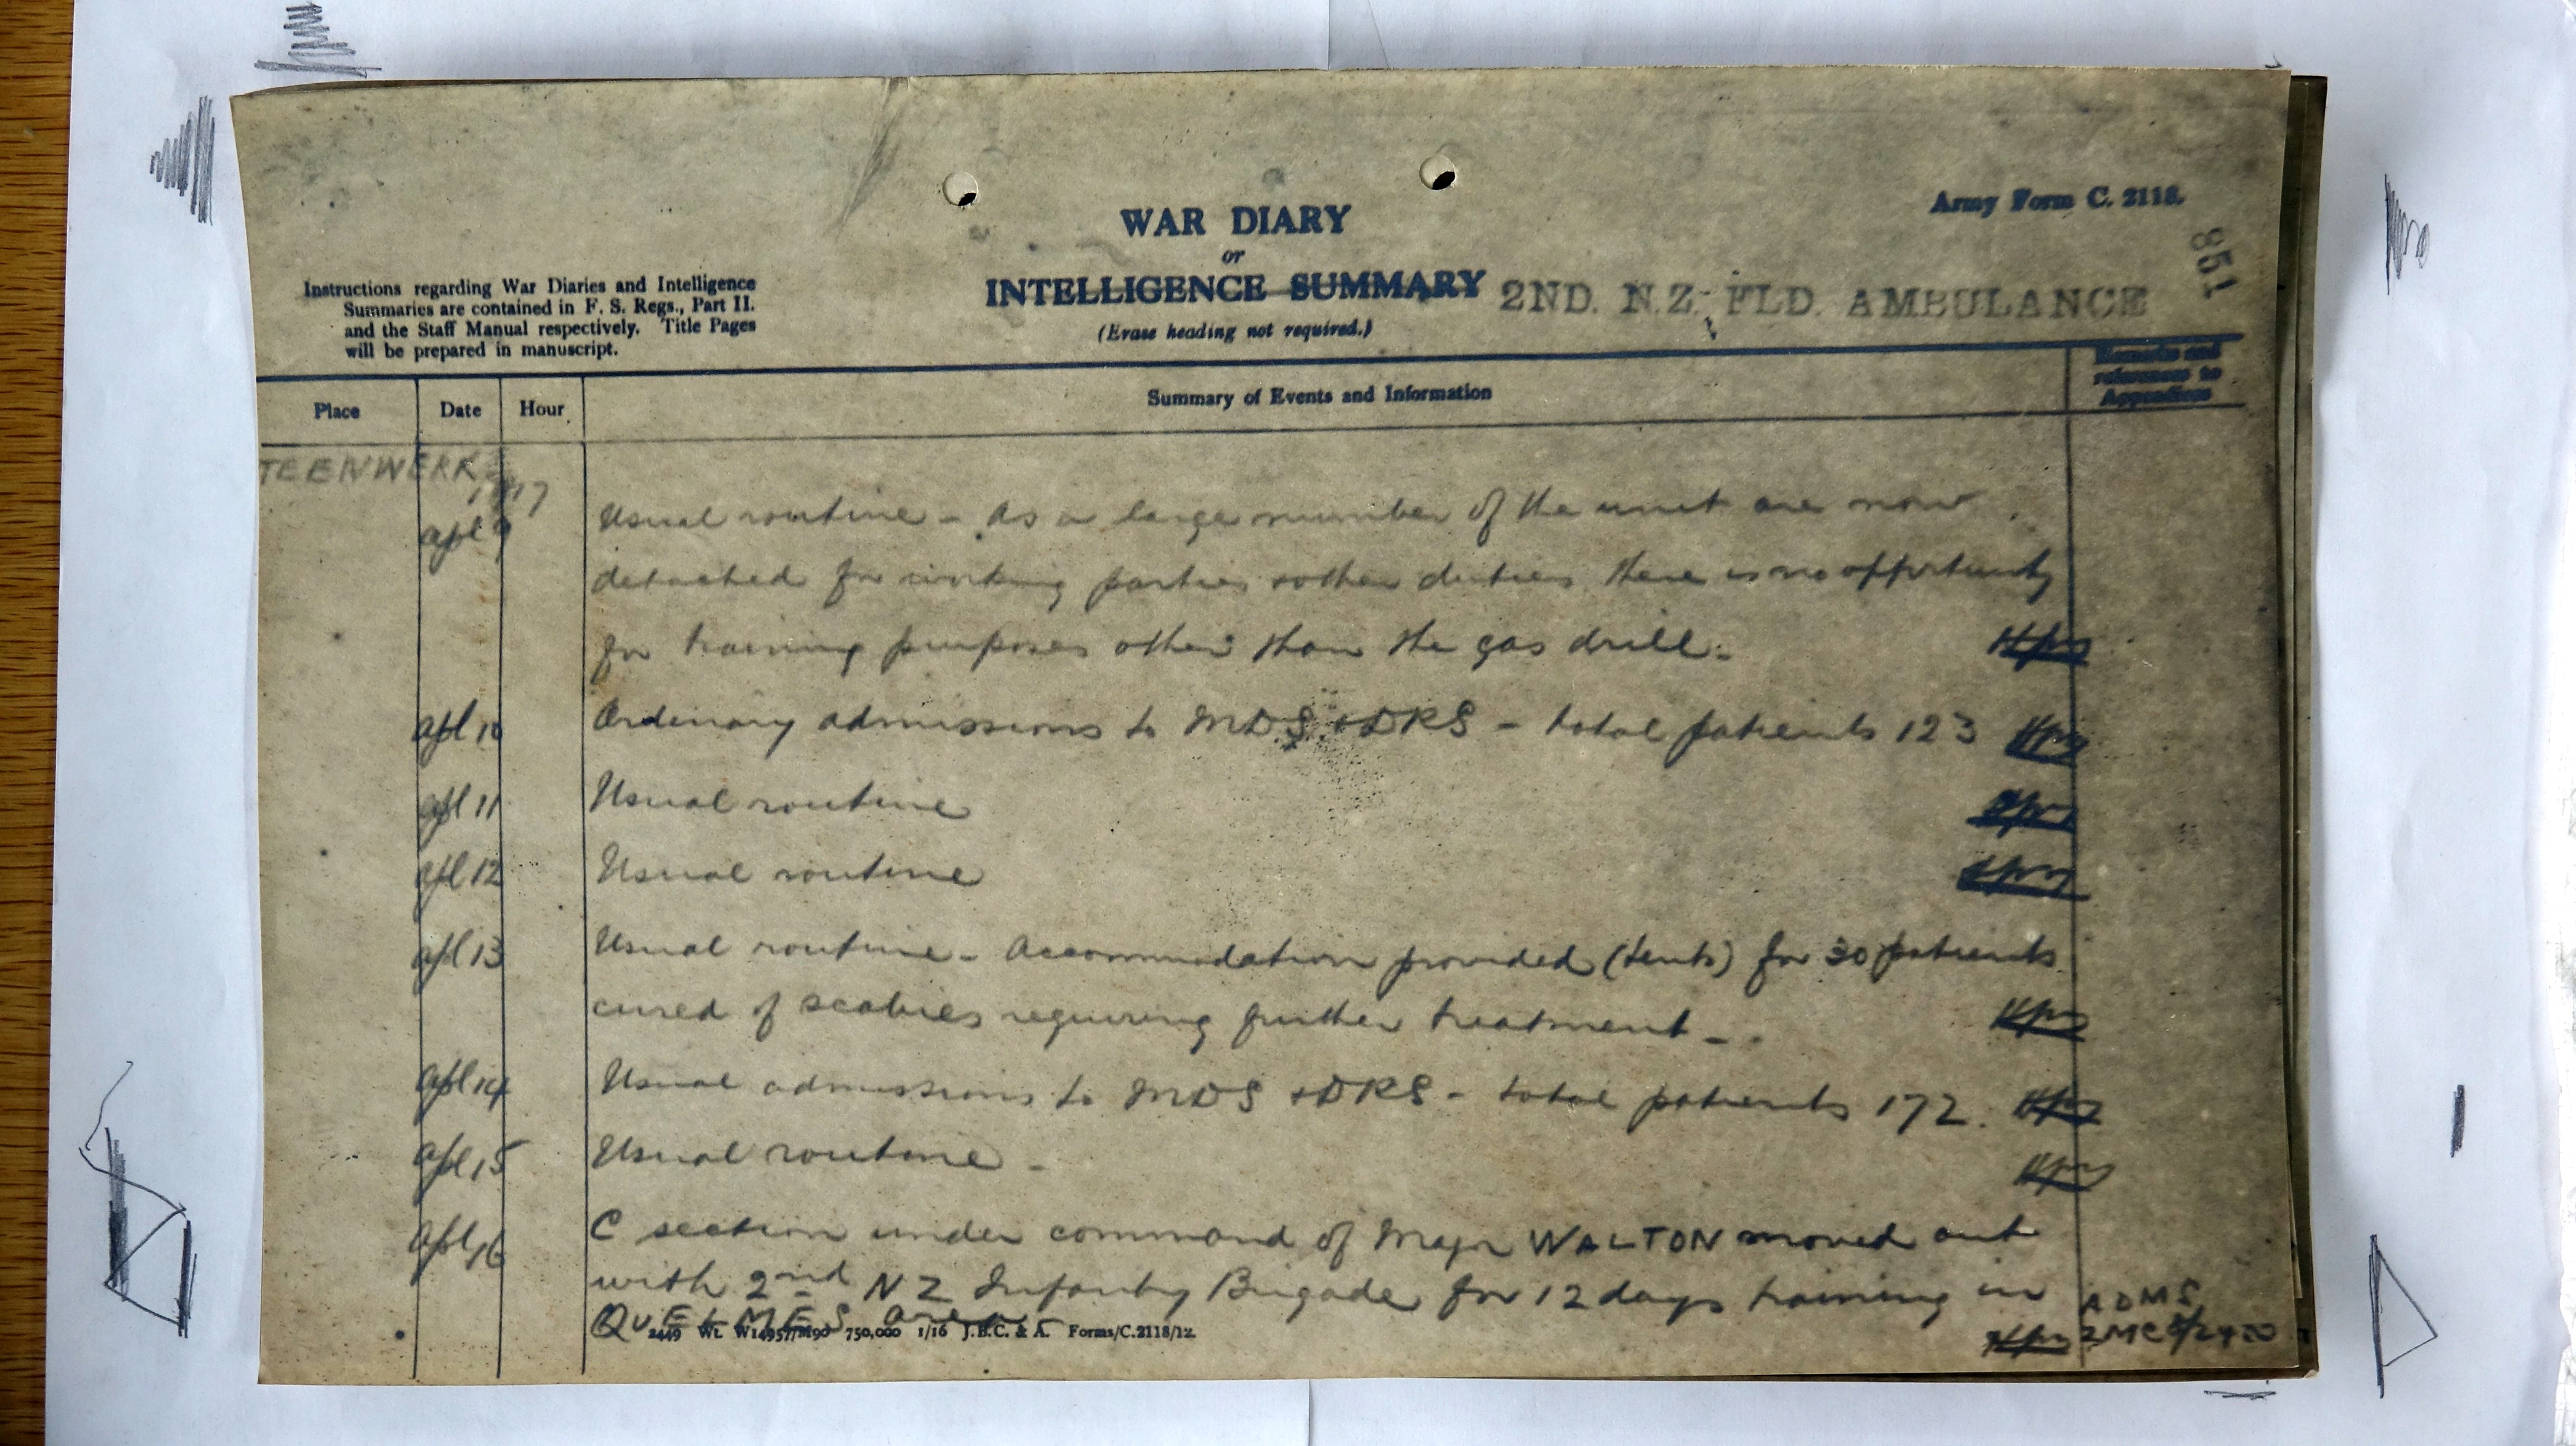 Army Form C. 2118.
851
WAR DIARY
or
INTELLIGENCE SUMMARY
(Erase heading not required.)
2ND. N.Z. FLD. AMBULANCE
Instructions regarding War Diaries and Intelligence
Summaries are contained in F. S. Regs., Part II.
and the Staff Manual respectively. Title Pages
will be prepared in manuscript.
Place Date Hour Summary of Events and Information Remarks and
references to
Appendices
TEENWERK
1917
Apl 9 Usual routine - As a large number of the unit are now
detached for working parties + other duties there is no opportunity
for training purposes other than the gas drill -
Apl 10 Ordinary admissions to MDS + DRS - total patients 123
Apl 11 Usual routine
Apl 12 Usual routine
Apl 13 Usual routine - Accommodation provided (tents) for 30 patients
cured of scabies requiring further treatment -
Apl 14 Usual admissions to MDS + DRS - total patients 172.
Apl 15 Usual routine -
Apl 16 C section under command of Major WALTON moved out
with 2nd NZ Infantry Brigade for 12 days training in
QUELMES area
ADMS
2449 Wt. W14957/M90 750,000 1/16 J.B.C. & A. Forms/C.2118/12.